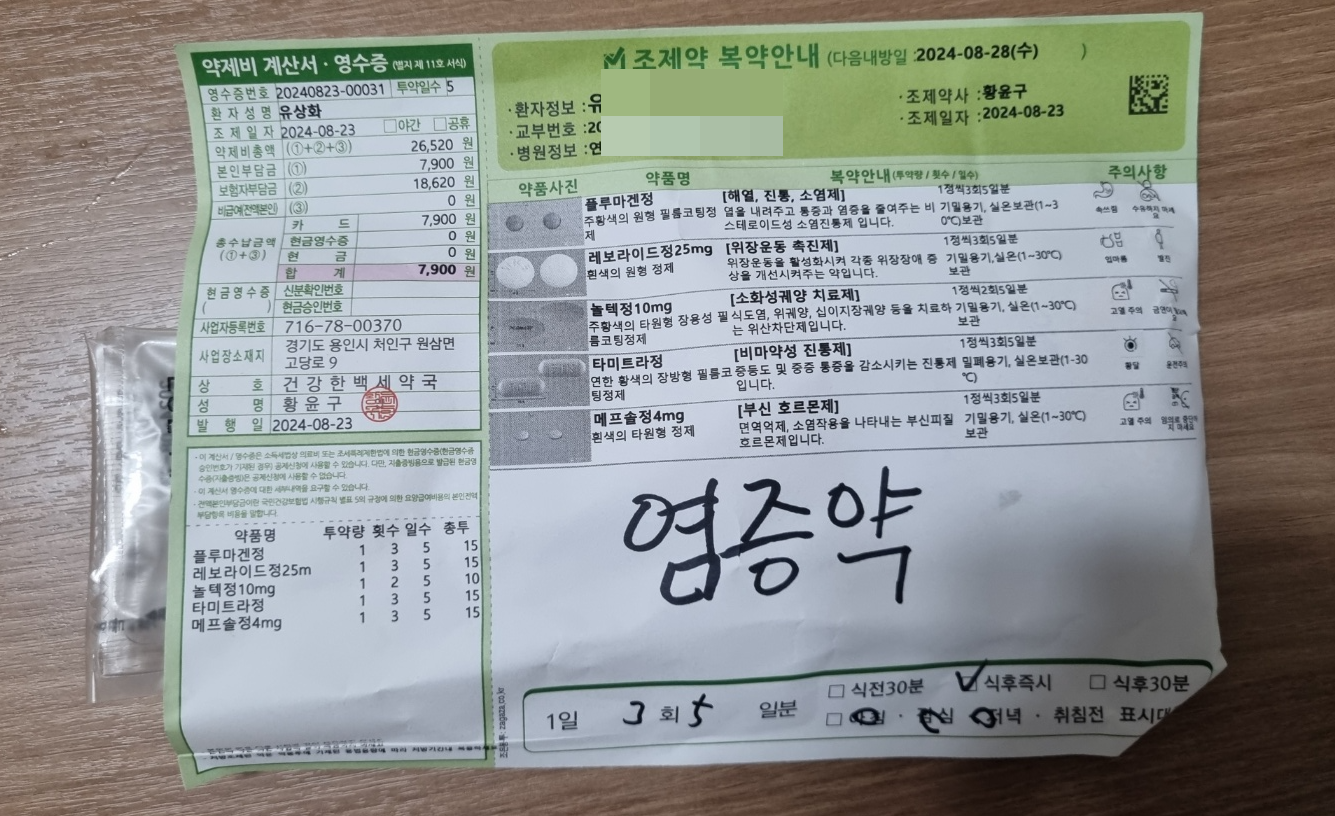 약제비 계산서 · 영수증 (별지 제 11호 서식)
영수증번호 20240823-00031 투약일수 5
환자성명 유상화
조제일자 2024-08-23 □야간 □공휴
약제비총액 (①+②+③) 26,520 원
본인부담금 (①) 7,900 원
보험자부담금 (②) 18,620 원
비급여(전액본인) (③) 0 원
총수납금액 (①+③)
카드 7,900 원
현금영수증 0 원
현금 0 원
합계 7,900 원
현금영수증 ( )
신분확인번호
현금승인번호
사업자등록번호 716-78-00370
사업장소재지 경기도 용인시 처인구 원삼면 고당로 9
상호 건강한백세약국
성명 황윤구
발행일 2024-08-23
· 이 계산서 / 영수증은 소득세법상 의료비 또는 조세특례제한법에 의한 현금영수증(현금영수증
승인번호가 기재된 경우) 공제신청에 사용할 수 있습니다. 다만, 지출증빙용으로 발급된 현금영
수증(지출증빙)은 공제신청에 사용할 수 없습니다.
· 이 계산서 영수증에 대한 세부내역을 요구할 수 있습니다.
· 전액본인부담금이란 국민건강보험법 시행규칙 별표 5의 규정에 의한 요양급여비용의 본인전액
부담항목 비용을 말합니다.
약품명 투약량 횟수 일수 총투
플루마겐정 1 3 5 15
레보라이드정25m 1 3 5 15
놀텍정10mg 1 2 5 10
타미트라정 1 3 5 15
메프솔정4mg 1 3 5 15
조제약 복약안내 (다음내방일 :2024-08-28(수) )
·환자정보 :유
·교부번호 :20
·병원정보 :연
·조제약사 :황윤구
·조제일자 :2024-08-23
약품사진 약품명 복약안내(투약량 / 횟수 / 일수) 주의사항
플루마겐정 [해열, 진통, 소염제] 1정씩3회5일분
주황색의 원형 필름코팅정 열을 내려주고 통증과 염증을 줄여주는 비 기밀용기, 실온보관(1~3
제 스테로이드성 소염진통제 입니다. 0℃)보관
속쓰림
레보라이드정25mg [위장운동 촉진제] 1정씩3회5일분
흰색의 원형 정제 위장운동을 활성화시켜 각종 위장장애 증 기밀용기, 실온(1~30℃)
상을 개선시켜주는 약입니다. 보관
입마름
놀텍정10mg [소화성궤양 치료제] 1정씩2회5일분
주황색의 타원형 장용성 필 식도염, 위궤양, 십이지장궤양 등을 치료하 기밀용기, 실온(1~30℃)
름코팅정제 는 위산차단제입니다. 보관
고열 주의
타미트라정 [비마약성 진통제] 1정씩3회5일분
연한 황색의 장방형 필름코 중등도 및 중증 통증을 감소시키는 진통제 밀폐용기, 실온보관(1-30
팅정제 입니다. ℃)
황달 운전주의
메프솔정4mg [부신 호르몬제] 1정씩3회5일분
흰색의 타원형 정제 면역억제, 소염작용을 나타내는 부신피질 기밀용기, 실온(1~30℃)
호르몬제입니다. 보관
고열 주의
염증약
1일 3 회 5 일분
□ 식전30분 ☑ 식후즉시 □ 식후30분
□ 아침 · 점심 · 저녁 · 취침전 표시대